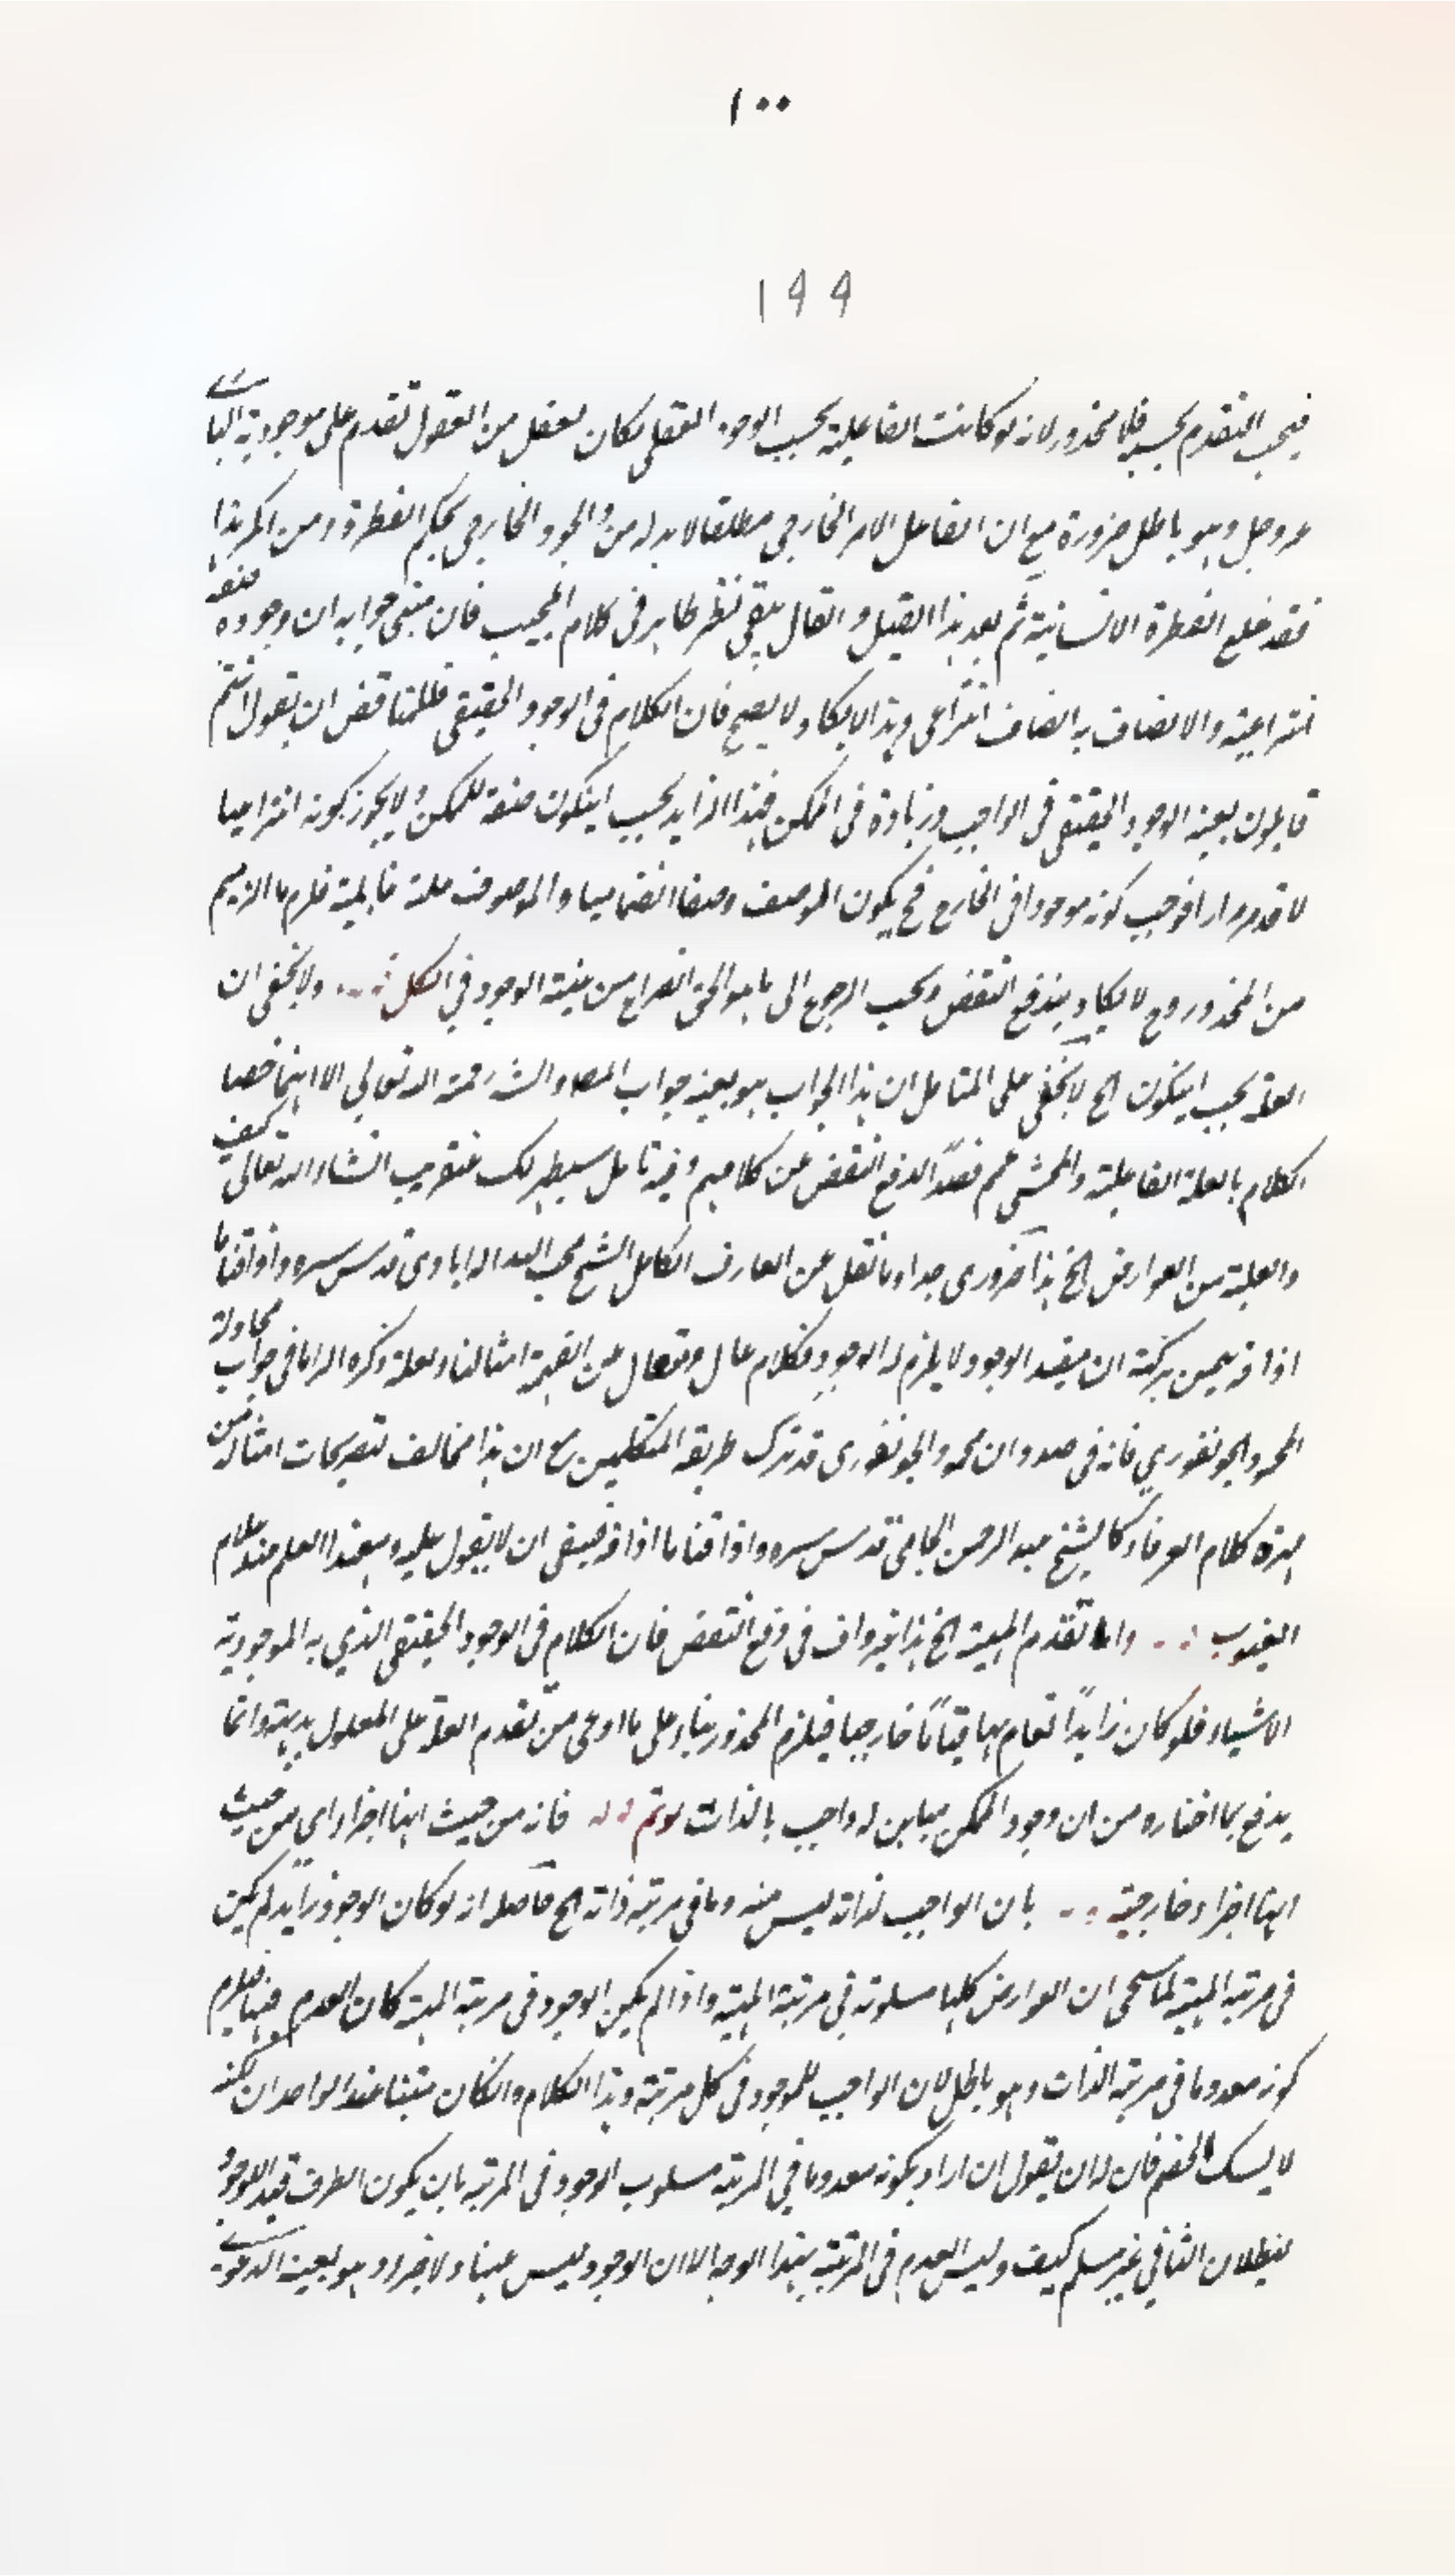 ١٠٠
١٩٩
فيجب التقدم بحسبه فلا محذور لانه لو كانت الفاعلية بحسب الوجود العقلي لكان لعقل من العقول تقدم على موجودية الباري
عز وجل وهو باطل ضرورة مع ان الفاعل الامر الخارجي مطلقا لا بد له من الوجود الخارجي بحكم الفطرة ومن انكر هذا
فقد خلع الفطرة الانسانية ثم بعد هذا القيل والقال بقي نظر ظاهر في كلام المجيب فان مبنى جوابه ان وجوده صفة
انتزاعية والاتصاف به اتصاف انتزاعي وهذا لا يكاد لا يصح فان الكلام في الوجود الحقيقي فللمناقض ان يقول انتم
قايلون بعينية الوجود الحقيقي في الواجب وزيادة في الممكن فهذا الزايد يجب ان يكون صفة للممكن ولا يجوز كونه انتزاعيا
لا قد مر مرارا فوجب كونه موجودا في الخارج فح يكون الوصف وصفا انضماميا والموصوف علة قابلية فلزم ما الزمتم
من المحذور وح لا يكاد يندفع النقض ويجب الرجوع الى ما هو الحق الصراح من عينية الوجود في الكل ولا يخفى ان
العلة يجب ان يكون الخ لا يخفى على المتامل ان هذا الجواب هو بعينه جواب المصنف والشارح رحمة الله تعالى الا انهما خصا
الكلام بالعلة الفاعلية والمحشي عمم قصدا لدفع النقض عن كلامهم وفيه تامل سيظهر لك عنقريب انشاء الله تعالى كيف
والعلية من العوارض الخ هذا ضروري جدا وما نقل عن العارف الكامل الشيخ محب الله الاله ابادي قدس سره واذاقنا ما
اذاقه بيمن بركته ان مفيد الوجود لا يلزم له الوجود فكلام عال ومتعال عن افهام امثالنا ولعله ذكره الزاما في جواب محاولة
المحمود الجونفوري فانه في صدد ان محمود الجونفوري قد ترك طريقة المتكلمين مع ان هذا مخالف لتصريحات امثاله من
مهرة كلام العرفاء كالشيخ عبد الرحمن الجامي قدس سره واذاقنا ما اذاقه فينبغي ان لا يقول عليه وبعد هذا العلم عند علام
الغيوب واما تقدم المهية الخ هذا غير واف في دفع النقض فان الكلام في الوجود الحقيقي الذي به الموجودية
الاشياء فلو كان زايدا لقام بها قياما خارجيا فيلزم المحذور بناء على ما ادعى من تقدم العلة على المعلول بديهة وانما
يدفع بما اختاره من ان وجود الممكن مباين له واجب بالذات فانه من حيث انها اجزاء اي من حيث
انها اجزاء خارجية بان الواجب لذاته ليس منه وما في مرتبة ذاته الخ حاصله انه لو كان الوجود زايدا لم يكن
في مرتبة المهية لما سيجئ ان العوارض كلها مسلوبة في مرتبة المهية واذا لم يكن الوجود في مرتبة المهية كان العدم فيها فيلزم
كونه معدوما في مرتبة الذات وهو باطل لان الواجب للموجود في كل مرتبة وهذا الكلام وانكان متينا عند الواحدان لكنه
لا يسكت الخصم فان له ان يقول ان اراد بكونه معدوما في المرتبة مسلوب الوجود في المرتبة بان يكون الظرف قيد الوجود
فبطلان الثاني غير مسلم كيف وليس العدم في المرتبة بهذا الوجه الا ان الوجود ليس عينا ولا جزاء وهو بعينه الدعوى